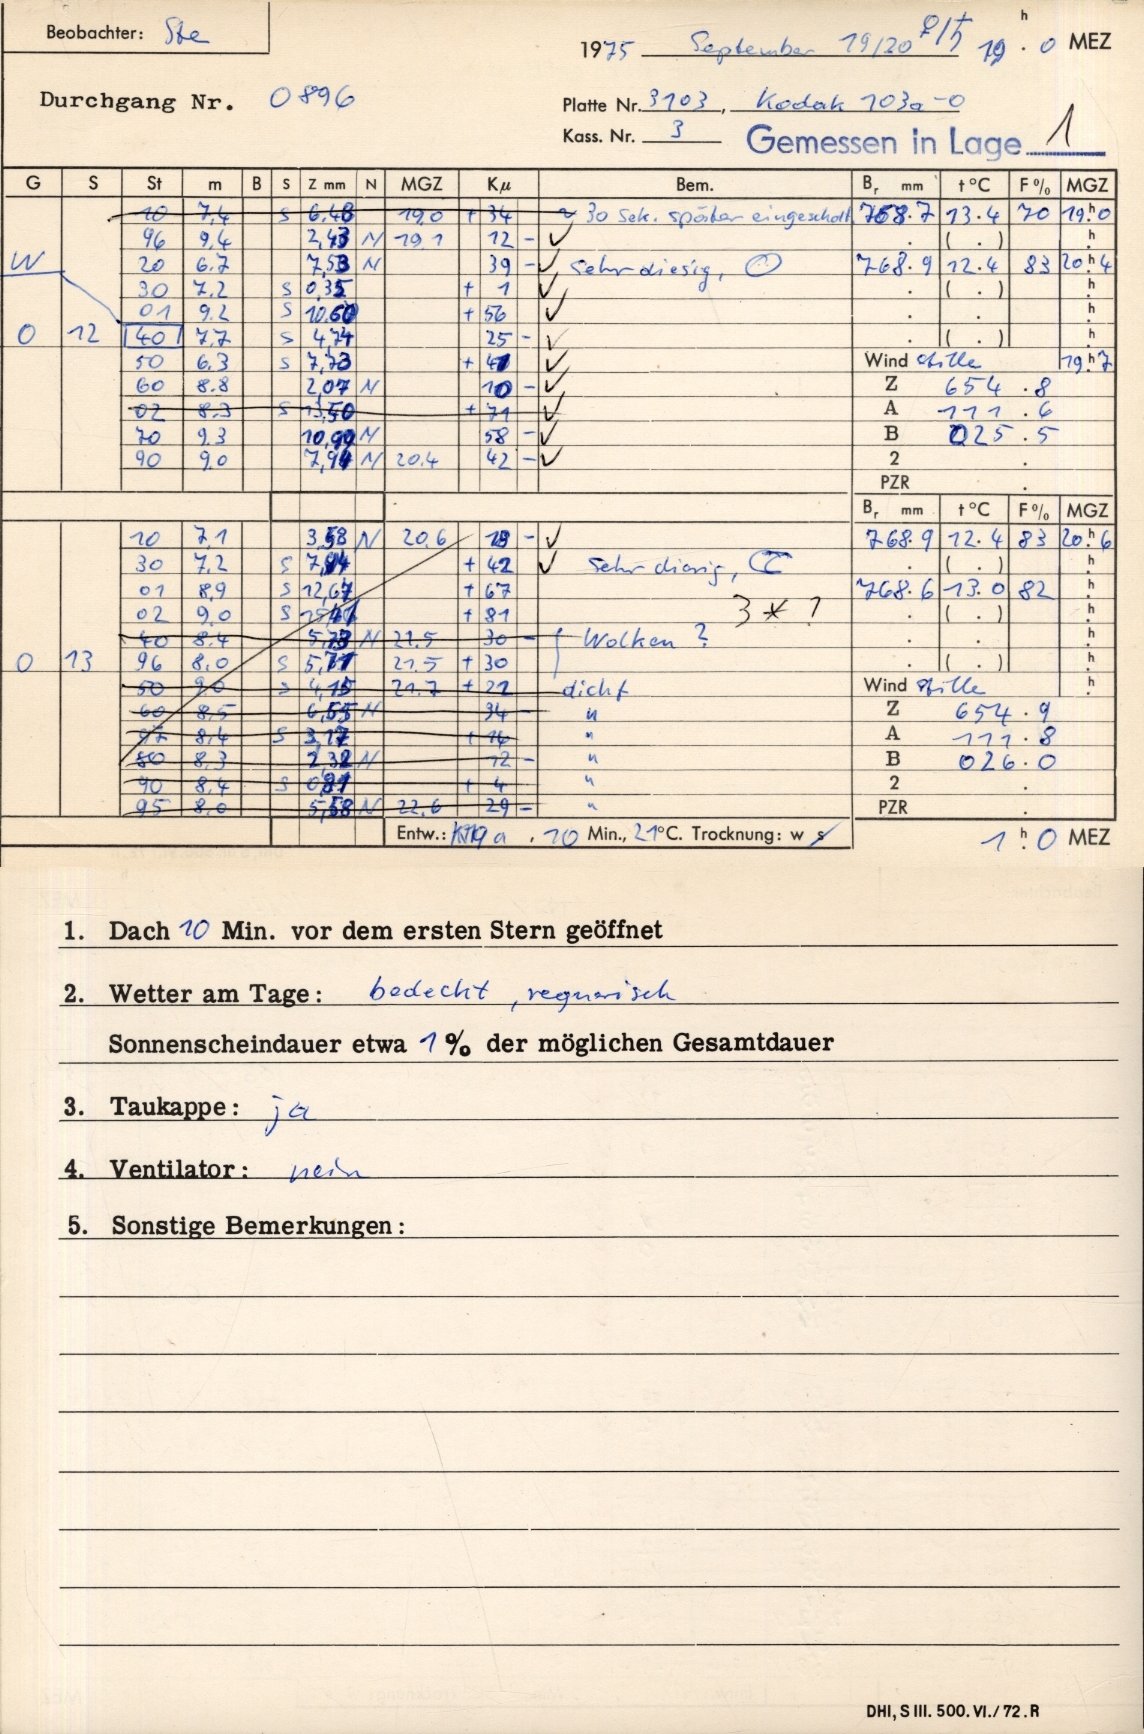 Beobachter: Ste
1975 September 19/20 ♀/♄ 19 h. 0 MEZ
Durchgang Nr. 0896
Platte Nr. 3103, Kodak 103a-0
Kass. Nr. 3 Gemessen in Lage 1
G S St m B S Z mm N MGZ Kμ Bem. Br mm t °C F % MGZ
10 7,4 S 6,48 19,0 + 34 ~ 30 Sek. später eingeschalt. 768.7 13.4 70 19.h0
96 9,4 2,43 N 19,1 12 - ✓ . ( . ) h
W 20 6.7 7,53 N 39 - ✓ Sehr diesig, 768.9 12.4 83 20.h4
30 7,2 S 0,35 + 1 ✓ . ( . ) h
01 9,2 S 10,60 + 56 ✓ . . h
0 12 40 7,7 S 4,74 25 - ✓ . ( . ) h
50 6,3 S 7,73 + 41 ✓ Wind stille 19.h7
60 8.8 2,07 N 10 - ✓ Z 654.8
02 8.3 S 13,50 + 71 ✓ A 111.6
70 9.3 10,90 N 58 - ✓ B 025.5
90 9,0 7,94 N 20.4 42 - ✓ 2 .
PZR .
Br mm t °C F % MGZ
10 7,1 3,58 N 20,6 18 - ✓ 768.9 12.4 83 20.h6
30 7,2 S 7,94 + 42 ✓ Sehr diesig, . ( . ) h
01 8,9 S 12,67 + 67 768.6 13.0 82
02 9,0 S + 81 3 * ? . ( . ) h
40 8.4 5,73 N 21,5 30 - Wolken ? . . h
0 13 96 8,0 S 5,71 21,5 + 30 . ( . ) h
50 9,0 S 4,15 21.7 + 22 dicht Wind stille h
60 8,5 6,55 N 34 - " Z 654.9
97 8,4 S 3,17 + 16 " A 111.8
80 8,3 2,32 N 12 - " B 026.0
90 8,4 S 0,81 + 4 " 2 .
95 8,0 5,58 N 22,6 29 - " PZR .
Entw.: a , 10 Min., 21°C. Trocknung: w s 1 h. 0 MEZ
1. Dach 10 Min. vor dem ersten Stern geöffnet
2. Wetter am Tage: bedeckt, regnerisch
Sonnenscheindauer etwa 1 % der möglichen Gesamtdauer
3. Taukappe: ja
4. Ventilator: nein
5. Sonstige Bemerkungen:
DHI, S III. 500. VI./72. R